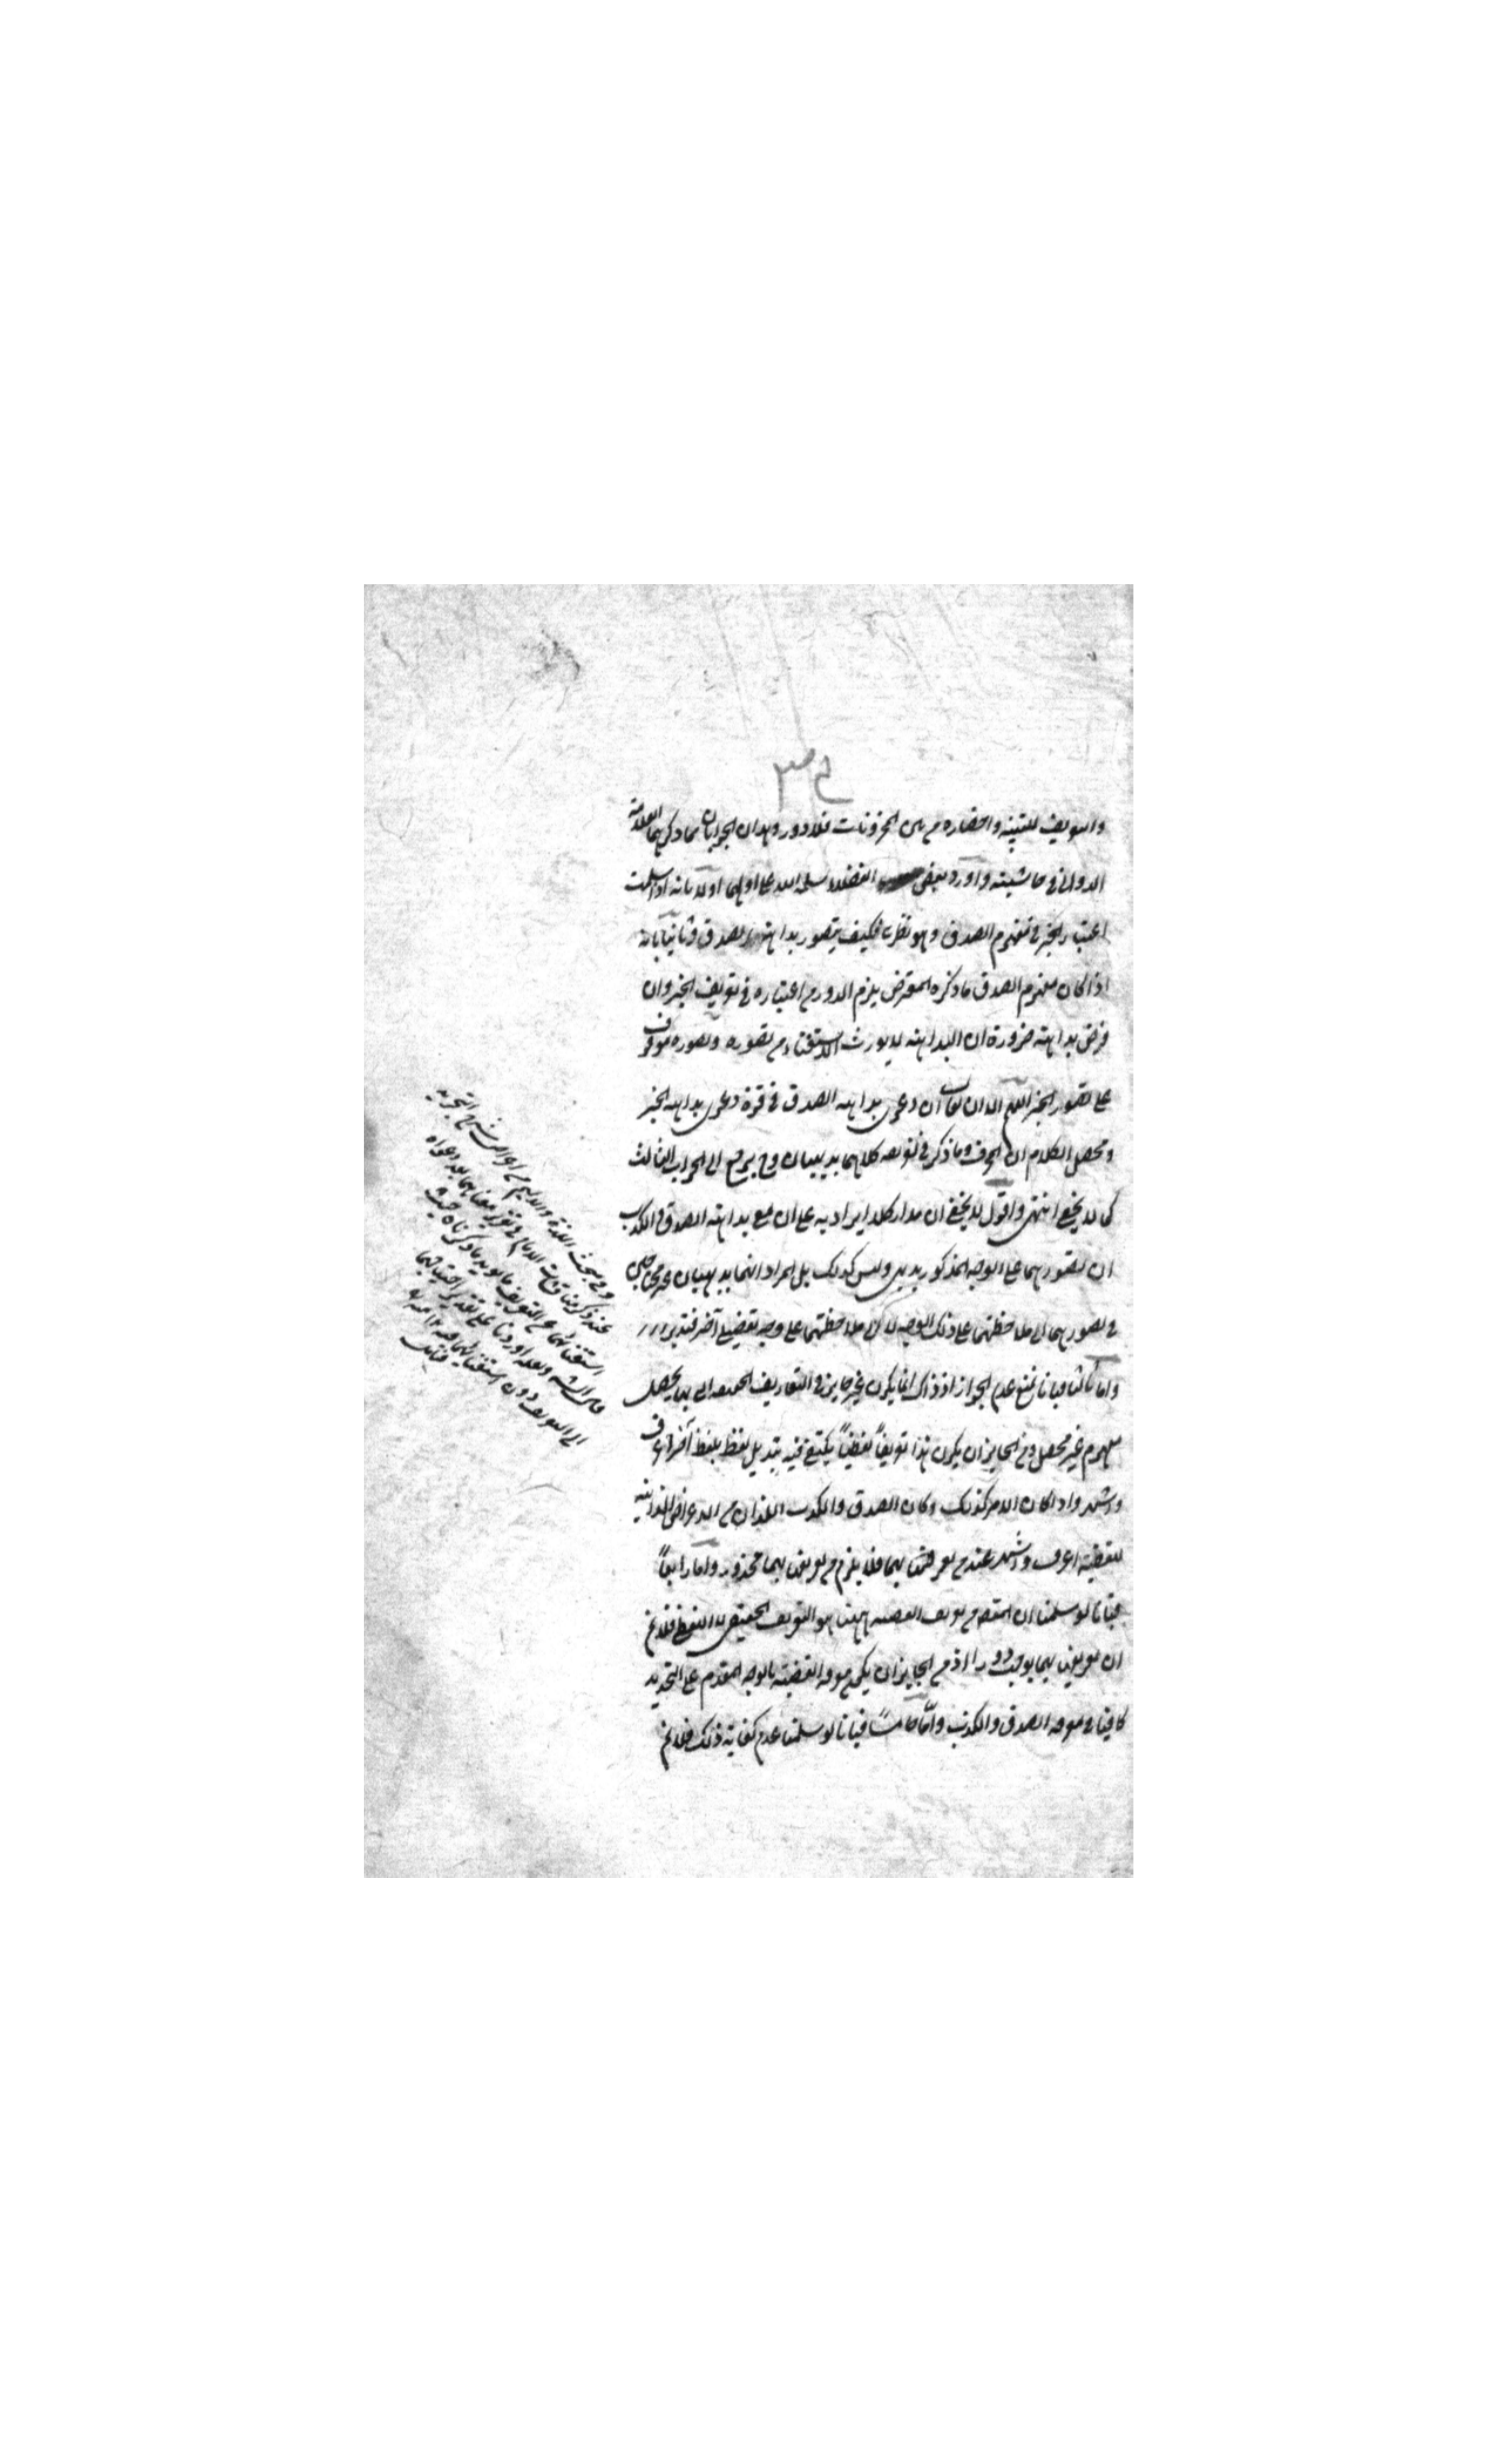 والتعريف للتنبيه واحضاره من بين المخزونات فلا دور وهذان الجوابان مما ذكرهما العلامة
الدواني في حاشيته واورد بعض الفضلاء سلمه الله على اولهما اولا بانه اذا سلمت
اعتبار الخبر في مفهوم الصدق وهو نظري فكيف يتصور بداهة الصدق وثانيا بانه
اذا كان مفهوم الصدق ما ذكره المعترض يلزم الدور من اعتباره في تعريف الخبر وان
فرض بداهته ضرورة ان البداهة لا يورث الاستغناء من تصوره وتصوره موقوف
على تصور الخبر اللهم الا ان يقال ان دعوى بداهة الصدق في قوة دعوى بداهة الخبر
ومحصل الكلام ان المعرف وما ذكر في تعريفه كلاهما بديهيان وح يرجع الى الجواب الثالث
كما لا يخفى انتهى واقول لا يخفى ان مدار كلا ايراديه على ان مع بداهة الصدق والكذب
ان تصورهما على الوجه المذكور بديهي وليس كذلك بل المراد انهما بديهيان غير محتاجين
في تصورهما الى ملاحظتهما على ذلك الوجه لا كل ملاحظتهما على وجه تفصيلي آخر فتدبر
واما ثالثا فبانا نمنع عدم الجواز اذ ذاك انما يكون غير جايز في التعاريف الحقيقية التي بها يحصل
مفهوم غير محصل ومن الجايز ان يكون هذا تعريفاً لفظياً يكتفى فيه بتبديل لفظ بلفظ آخر اعرف
واشهر واذا كان الامر كذلك وكان الصدق والكذب اللذان من الاعراض الذاتية
للقضية اعرف واشهر عند من يعرفها بهما فلا يلزم من تعريفها بهما محذور واما رابعاً
فبانا لو سلمنا ان المقصود من تعريف القضية ههنا هو التعريف الحقيقي لا اللفظي فلا نم
ان تعريفها بهما يوجب دورا اذ من الجايز ان يكون معرفة القضية بالوجه المقدم على التحديد
كافيا في معرفة الصدق والكذب واما خامساً فبانا لو سلمنا عدم كفاية ذلك فلا نم
وفي مبحث اللذة والالم من اواخر شرح التجريد
عند ذكر مناقشات الامام في تعريفهما بعد دعواه
استغنائهما عن التعريف ما يؤيد ما ذكرناه حيث
على تقدير احتياجهما
الى التعريف دون استغنائهما عنه